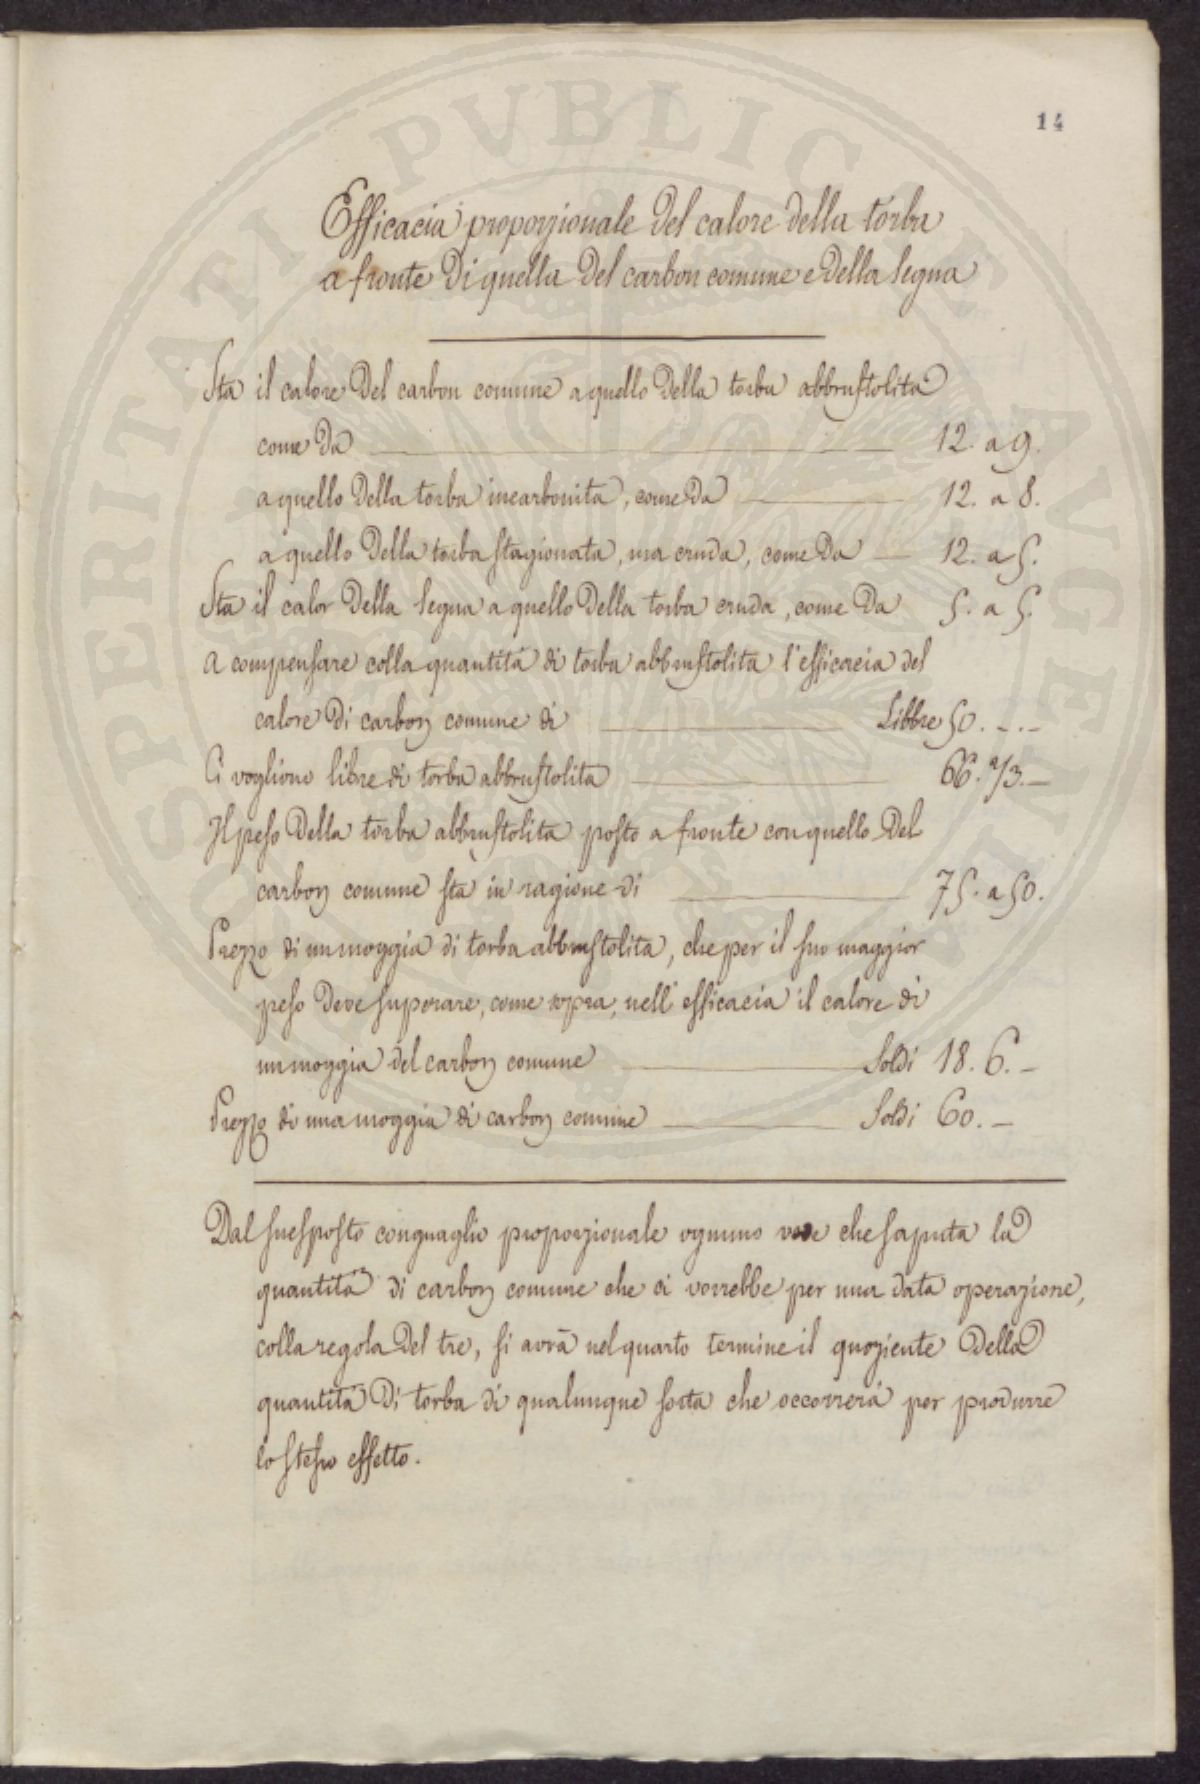 14
Efficacia proporzionale del calore della torba
a fronte di quella del carbon comune e della legna
Sta il calore del carbon comune a quello della torba abbrustolita
come da 12. a 9.
a quello della torba incarbonita, come da 12. a 8.
a quello della torba stagionata, ma cruda, come da 12. a 5.
Sta il calor della legna a quello della torba cruda, come da 5. a 5.
A compensare colla quantità di torba abbrustolita l'efficacia del
calore di carbon comune di Libbre 50. -.-
Ci vogliono libre di torba abbrustolita 66. 2/3.-
Il peso della torba abbrustolita posto a fronte con quello del
carbon comune sta in ragione di 75. a 50.
Prezzo di un moggia di torba abbrustolita, che per il suo maggior
peso deve superare, come sopra, nell'efficacia il calore di
un moggia del carbon comune Soldi 18. 6.-
Prezzo di una moggia di carbon comune Soldi 60.-
Dal suesposto conguaglio proporzionale ognuno vede che saputa la
quantità di carbon comune che ci vorrebbe per una data operazione,
colla regola del tre, si avrà nel quarto termine il quoziente della
quantità di torba di qualunque sorta che occorrerà per produrre
lo stesso effetto.
PVBLICAE